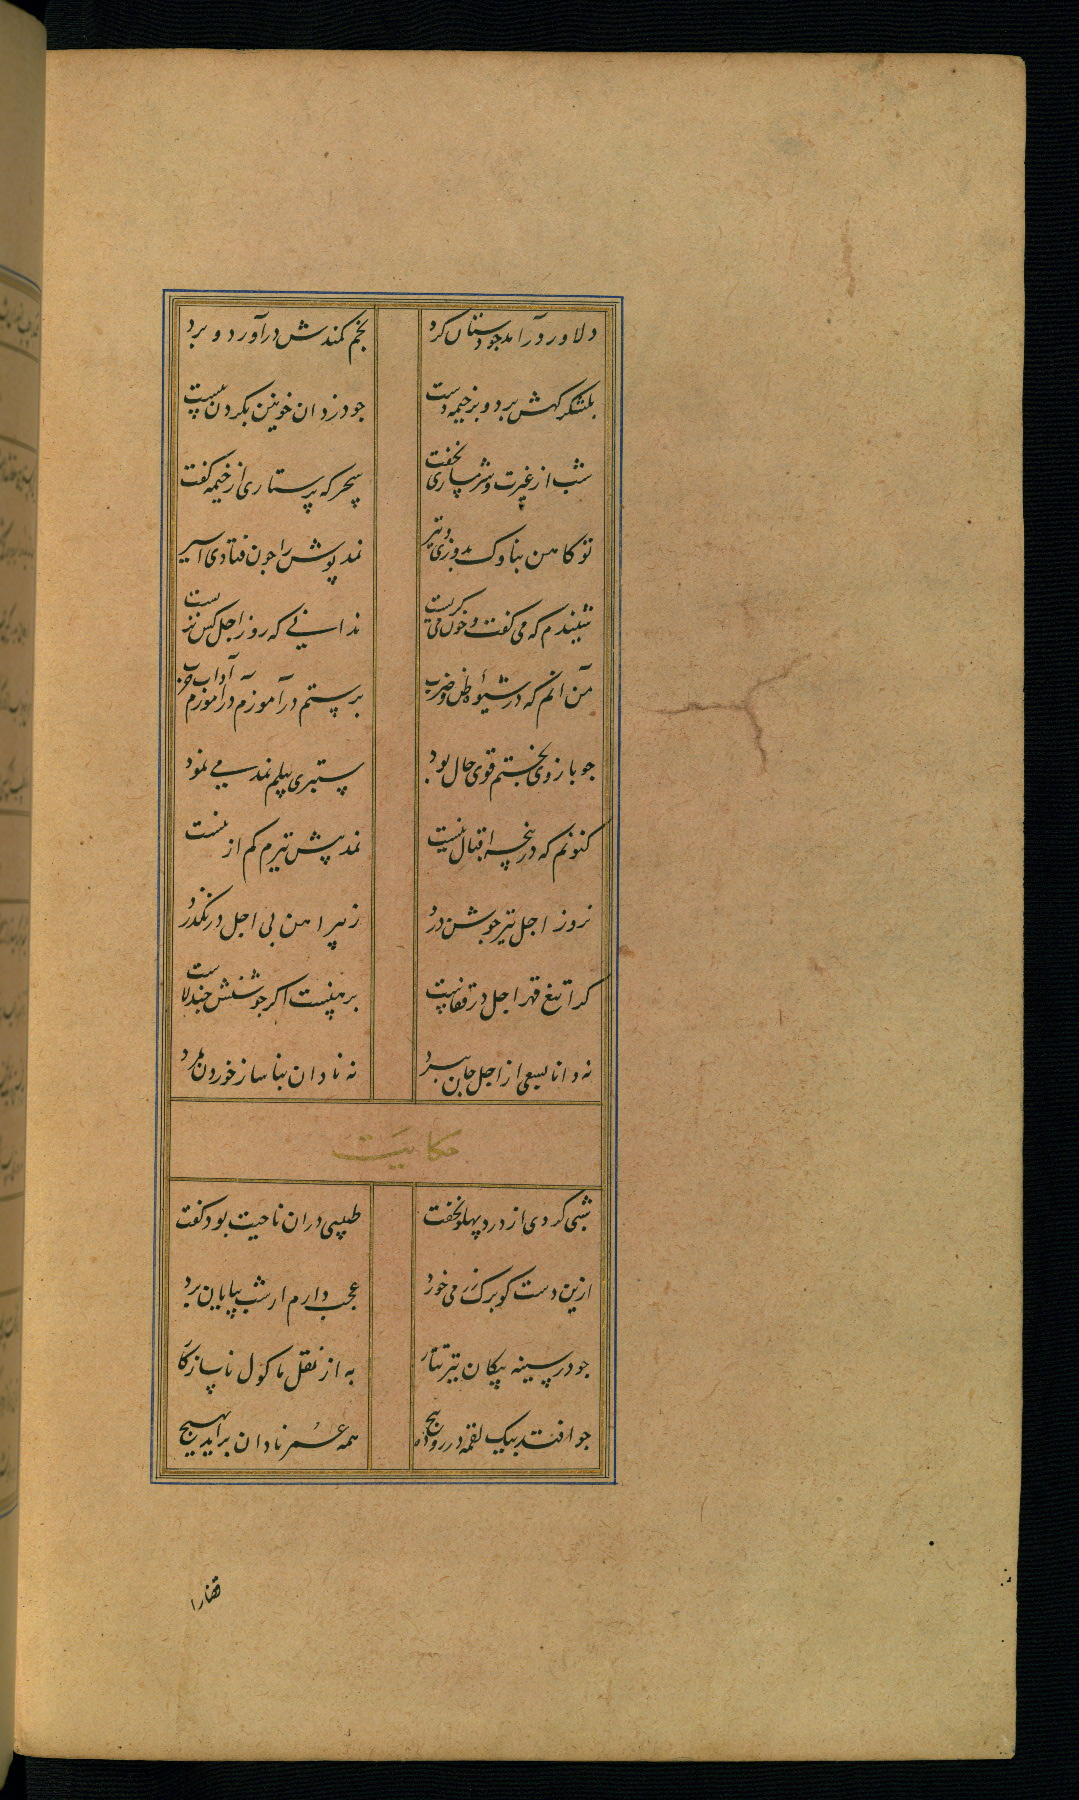 دلاور درآمد جو دستان کرد بخم کمندش درآورد و برد
بلشکر کهش برد و بر خیمه دست جو دزدان خونین بکردن ببست
شب از غیرت و شرمساری نخفت سحرکه پرستاری از خیمه کفت
تو کاهن بناوک بدوزی و تیر نمدپوش را جون فتادی اسیر
شنیدم که می کفت و خون می کریست ندانی که روز اجل کس نزیست
من آنم که در شیوه طعن و ضرب برستم در آموزم آداب حرب
جو بازوی بختم قوی حال بود ستبری پیلم نمد می نمود
کنونم که در پنجه اقبال نیست نمد پیش تیرم کم از نیست
بروز اجل تیر جوشن درد ز پیراهن بی اجل درنکذرد
کرا تیغ قهر اجل در قفاست برهنست اکر جوشنش جندلاست
نه دانا بسعی از اجل جان ببرد نه نادان بناساز خوردن بمرد
حکایت
شبی کردی از درد پهلو نخفت طبیبی دران ناحیت بود کفت
ازین دست کو برک رز می خورد عجب دارم ار شب بپایان برد
جو در سینه پیکان تیر تتار به از نقل ماکول ناسازکار
جو افتد بیک لقمه در روده پیج همه عمر نادان براید بهیج
قضارا